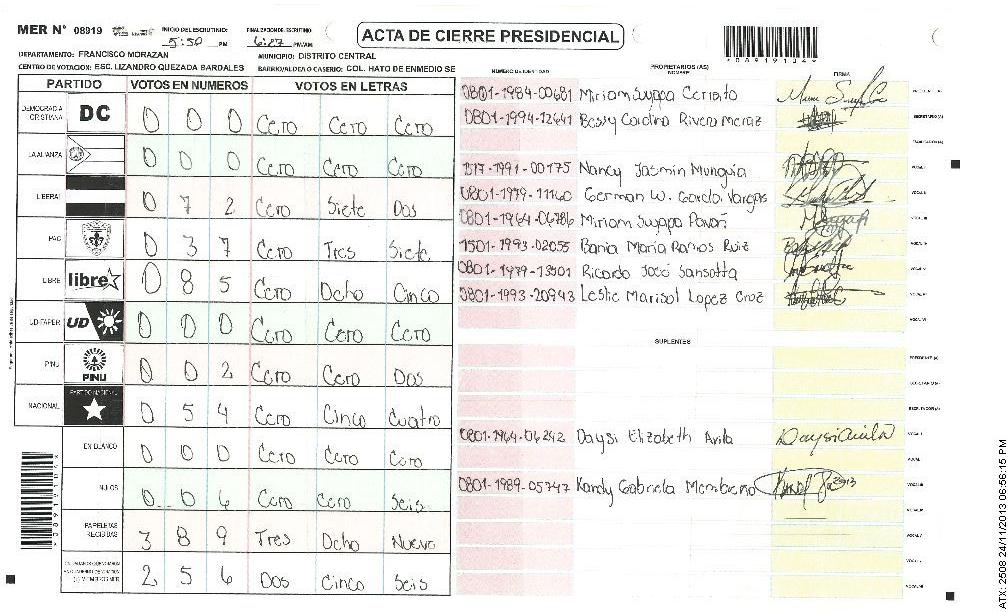 MER N° 08919 INICIO DEL ESCRUTINIO: 5:50 PM FINALIZACION DEL ESCRUTINIO 6:27 PM/AM
ACTA DE CIERRE PRESIDENCIAL
08919104
DEPARTAMENTO: FRANCISCO MORAZAN MUNICIPIO: DISTRITO CENTRAL
CENTRO DE VOTACION: ESC. LIZANDRO QUEZADA BARDALES BARRIO/ALDEA O CASERIO: COL. HATO DE ENMEDIO SE
PARTIDO VOTOS EN NUMEROS VOTOS EN LETRAS
DEMOCRACIA CRISTIANA DC 0 0 0 Cero Cero Cero
LA ALIANZA 0 0 0 Cero Cero Cero
LIBERAL 0 7 2 Cero Siete Dos
PAC 0 3 7 Cero Tres Siete
LIBRE libre 0 8 5 Cero Ocho Cinco
UD-FAPER UD 0 0 0 Cero Cero Cero
PINU PINU 0 0 2 Cero Cero Dos
NACIONAL PARTIDO NACIONAL 0 5 4 Cero Cinco Cuatro
EN BLANCO 0 0 0 Cero Cero Cero
NULOS 0 0 6 Cero Cero Seis
PAPELETAS RECIBIDAS 3 8 9 Tres Ocho Nueve
2 5 6 Dos Cinco Seis
NUMERO DE IDENTIDAD PROPIETARIOS (AS) NOMBRE FIRMA
0801-1984-00681 Miriam Suyapa Cerrato
0801-1994-12641 Bessy Carolina Rivera Meraz SECRETARIO (A)
ESCRUTADOR (A)
1517-1991-00175 Nancy Jasmin Munguia
0801-1979-11160 German W. Garcia Vargas
0801-1964-06786 Miriam Suyapa Pavon
1501-1993-02055 Bania Maria Ramos Ruiz
0801-1979-13501 Ricardo Jose Sansotta
0801-1993-20943 Leslie Marisol Lopez Cruz
SUPLENTES
PRESIDENTE (A)
SECRETARIO (A)
ESCRUTADOR (A)
0801-1964-06242 Daysi Elizabeth Avila Daysi Avila
0801-1989-05747 Kandy Gabriela Membreño
ATX: 2508 24/11/2013 06:56:15 PM